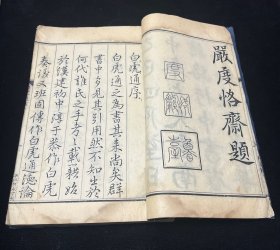 嚴度恪齋題
白虎通序
白虎通之為書其來尚矣羣
書中多見其引用然不知出於
何代誰氏之手考之載籍始
於漢建初中淳于恭作白虎
奏議又班固傳作白虎通德論